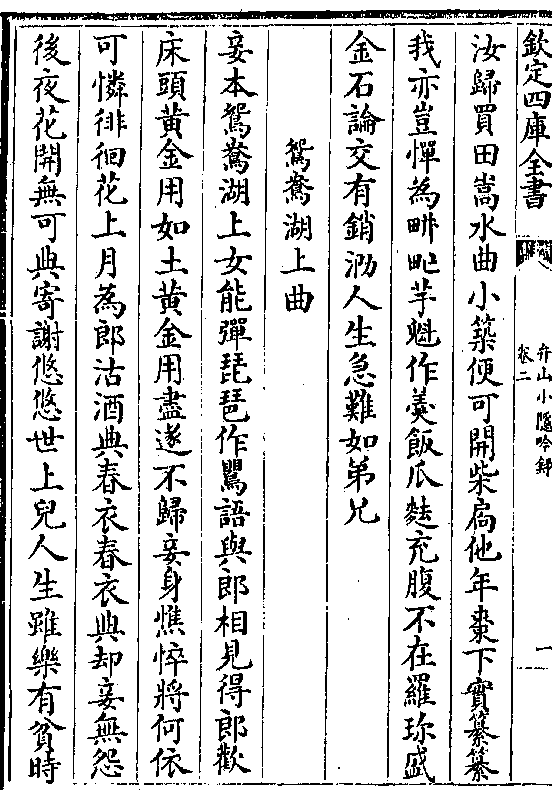 欽定四庫全書
弁山小隱吟錄
卷二
一
汝歸買田嵩水曲小築便可開柴扃他年棗下實纂纂
我亦豈憚為畊甿芋魁作羮飯瓜麩充腹不在羅珍盛
金石論交有銷泐人生急難如弟兄
鴛鴦湖上曲
妾本鴛鴦湖上女能彈琵琶作鸎語與郎相見得郎歡
床頭黃金用如土黃金用盡遂不歸妾身憔悴將何依
可憐徘徊花上月為郎沽酒典春衣春衣典却妾無怨
後夜花開無可典寄謝悠悠世上兒人生雖樂有貧時